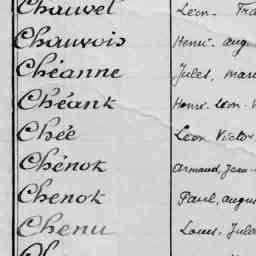 Chauvel Léon - Fra
Chauvois Henri - augu
Chéanne Jules, mari
Chéant Henri Léon - V
Chée Léon Victor
Chénot Armand, Jean-
Chenot Paul, augus
Chenu Louis, Jules